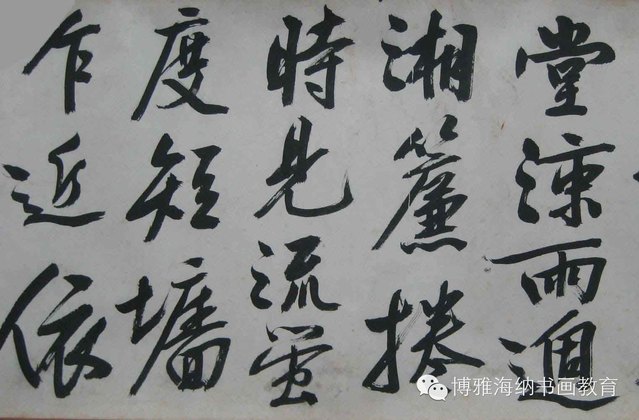 堂涼雨過
湘簾捲
時見流螢
度短墻
乍近依
博雅海纳书画教育